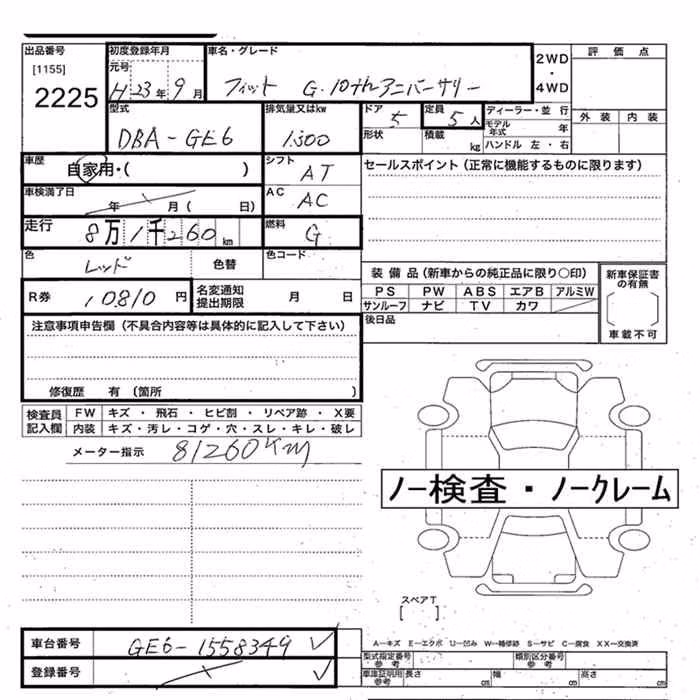 出品番号
[1155]
2225
初度登録年月
元号
H23年9月
車名・グレード
フィット G・10thアニバーサリー
2WD
・
4WD
評価点
型式
DBA-GE6
排気量又はkw
1300
ドア
5
定員
5人
形状
積載
kg
ディーラー・並行
モデル年式 年
ハンドル 左・右
外装 内装
車歴
自家用・( )
シフト
AT
セールスポイント(正常に機能するものに限ります)
車検満了日
年 月( 日)
AC
AC
走行
8万1千260km
燃料
G
色
レッド
色替
色コード
装備品(新車からの純正品に限り○印)
PS PW ABS エアB アルミW
サンルーフ ナビ TV カワ
新車保証書の有無
[ ]
車載不可
R券
10810円
名変通知提出期限
月 日
後日品
注意事項申告欄(不具合内容等は具体的に記入して下さい)
修復歴 有(箇所 )
検査員記入欄
FW キズ・飛石・ヒビ割・リペア跡・X要
内装 キズ・汚レ・コゲ・穴・スレ・キレ・破レ
メーター指示 81260KM
ノー検査・ノークレーム
スペアT
[ ]
車台番号
GE6-1558349
登録番号
A―キズ E―エクボ U―凹み W―補修跡 S―サビ C―腐食 XX―交換済
型式指定番号参考
類別区分番号参考
車庫証明用参考
長さ cm 幅 cm 高さ cm